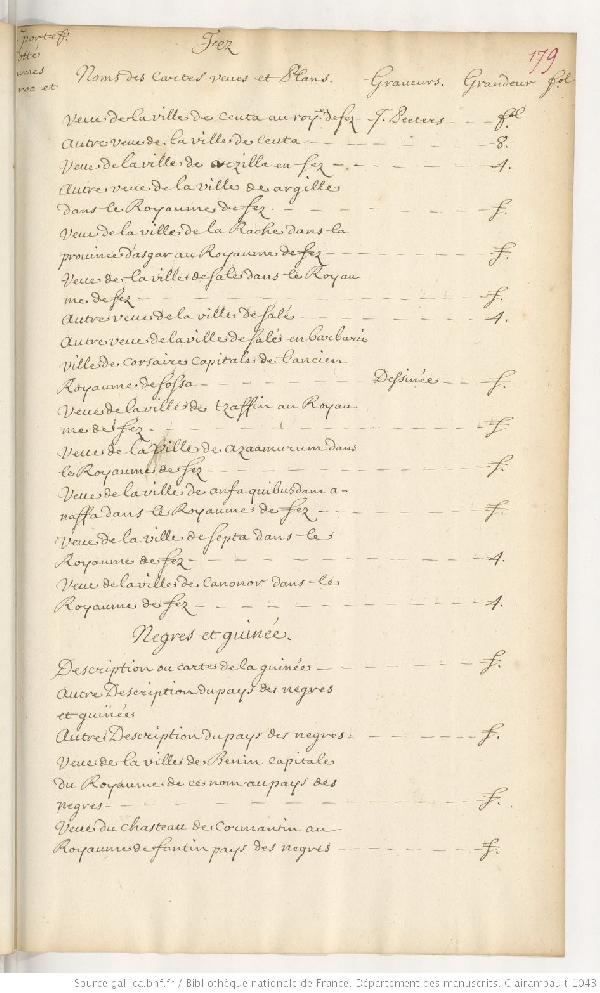 porte f.
otté
mes
roc et
Fez
179
Noms des Cartes veues et Plans. Graveurs. Grandeur fol
Veue de la ville de Ceuta au roy.me de fez J. Peeters fol
Autre veue de la ville de Ceuta 8.
Veue de la ville de Arzille en fez 4.
Autre veue de la ville de argille
dans le Royaume de fez. f.
Veue de la ville de la Rache dans la
province d'asgar au Royaume de fez f.
Veue de la ville de Salé dans le Royau
me de fez f.
Autre veue de la ville de Salé 4.
Autre veue de la ville de Salé en barbarie
ville de Corsaire capitale de l'ancien
Royaume de fossa Dessinée f.
Veue de la ville de tzaffin au Royau
me de fez. f.
Veue de la ville de azaamurum dans
le Royaume de fez f.
Veue de la ville de anfa quibusdam a
naffa dans le Royaume de fez f.
Veue de la ville de septa dans le
Royaume de fez 4.
Veue de la ville de Canonor dans le
Royaume de fez 4.
Negres et guinée.
Description ou cartes de la guinée f.
Autre Description du pays des negres
et guinée
Autre Description du pays des negres f.
Veue de la ville de Benin capitale
du Royaume de ce nom au pays des
negres f.
Veue du chasteau de Cormantin au
Royaume de fantin pays des negres f.
Source gallica.bnf.fr / Bibliothèque nationale de France. Département des manuscrits. Clairambault 1043